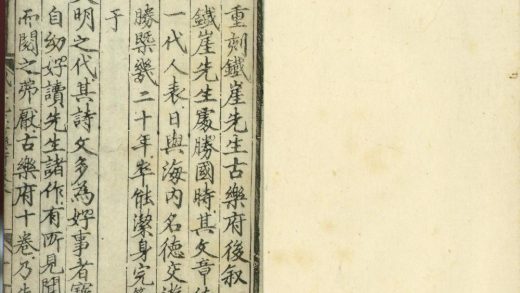 重刻鐵崖先生古樂府後叙
鐵崖先生處勝國時其文章
一代人表日與海内名德交游
勝槩幾二十年卒能潔身完
于
大明之代其詩文多為好事者
自幼好讀先生諸作有所見聞
不閱之弗厭古樂府十卷乃